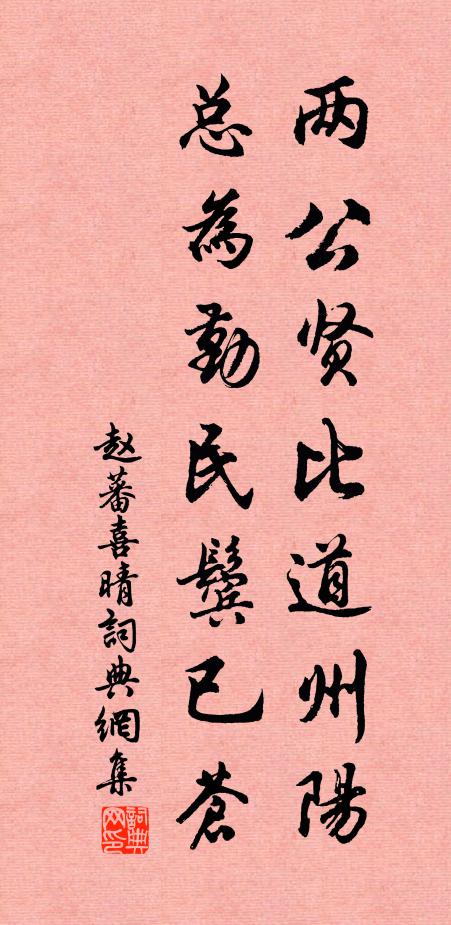 两公贤比道州陽
总為勤民鬓已蒼
赵蕃喜晴詞典網集
詞典网印